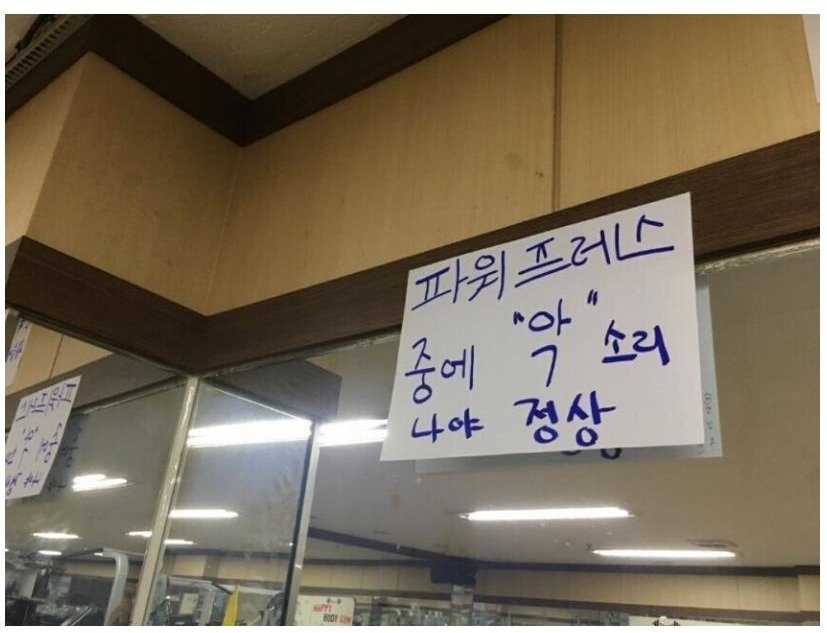 파워프레스
중에 "악" 소리
나야 정상
HAPPY
BODY GYM